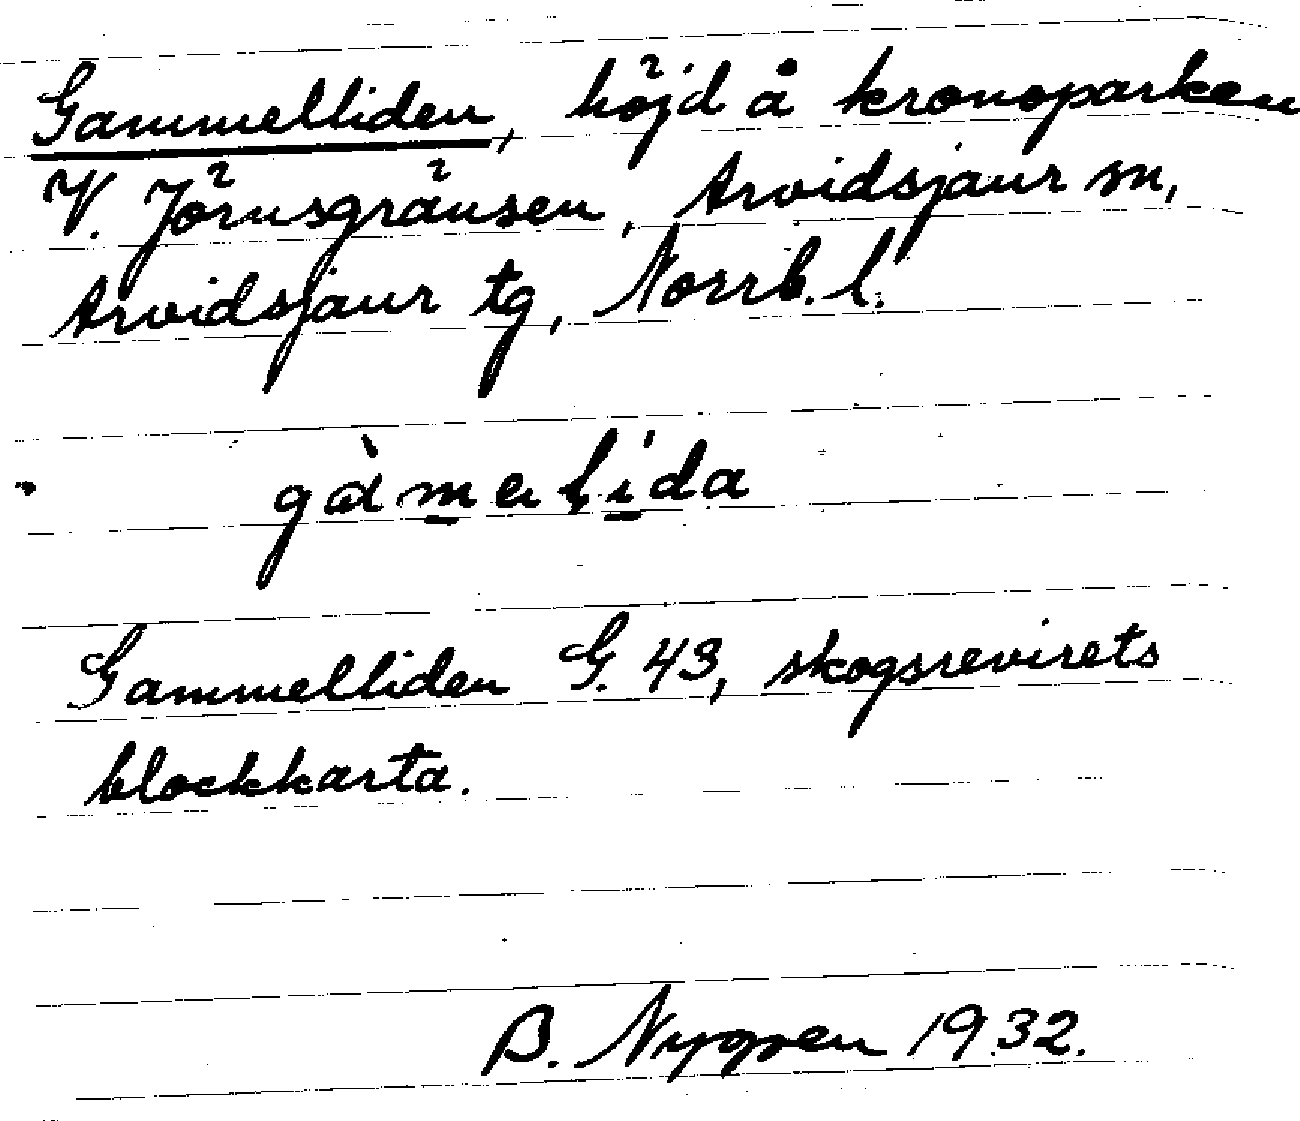 Gammelliden, höjd å kronoparken
V. Jörnsgränsen, Arvidsjaur sn,
Arvidsjaur tg, Norrb. l.
gàmelida
Gammelliden G. 43, skogsrevirets
blockkarta.
B. Nygren 1932.